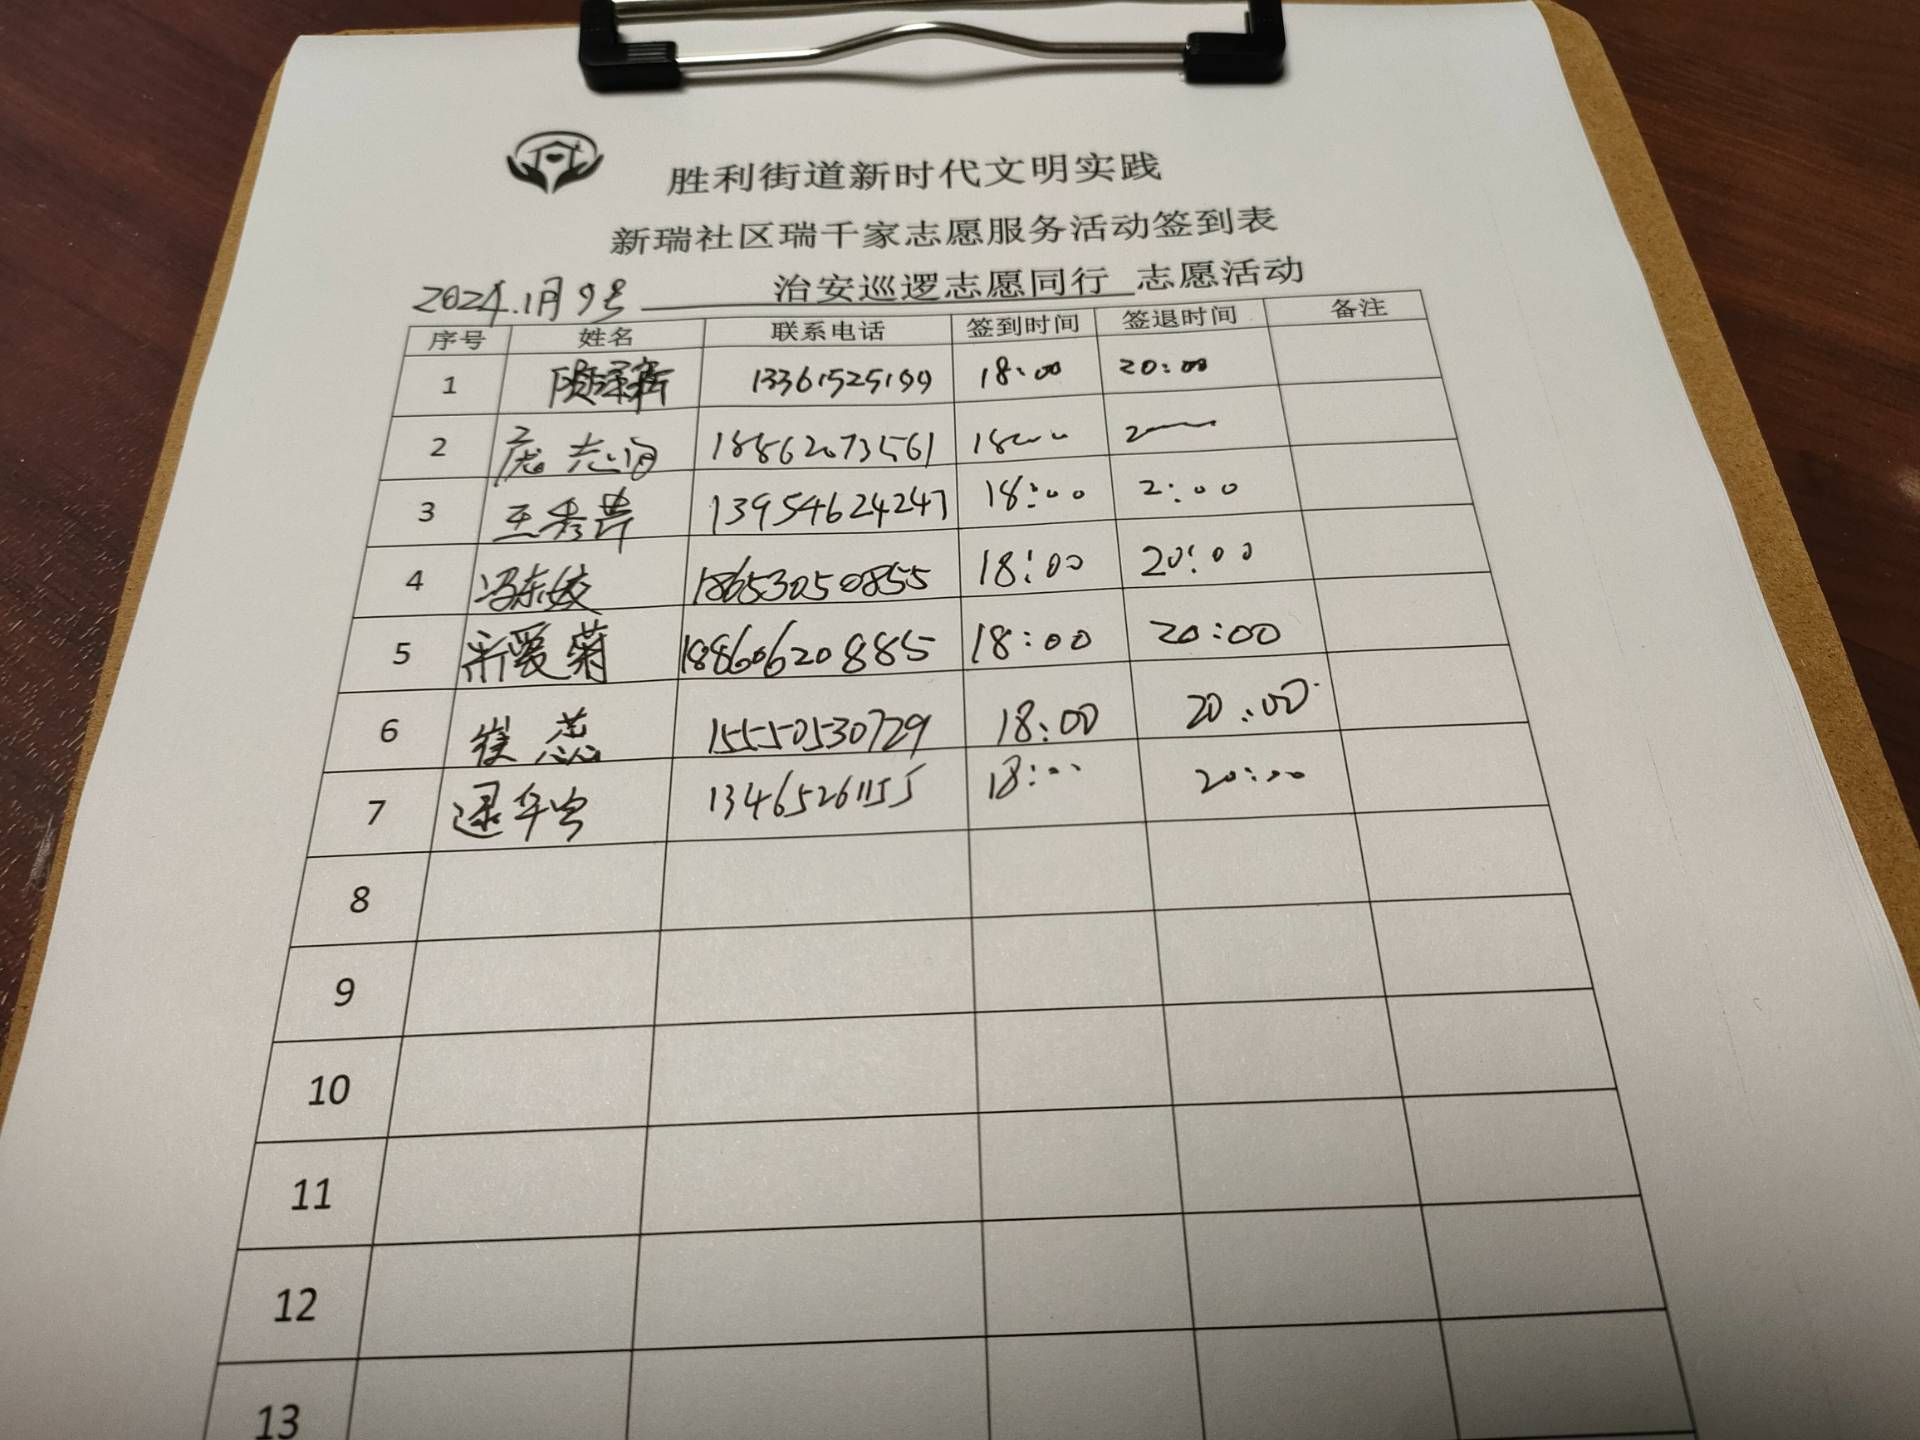 胜利街道新时代文明实践
新瑞社区瑞千家志愿服务活动签到表
2024.1月9号 治安巡逻志愿同行 志愿活动
序号 姓名 联系电话 签到时间 签退时间 备注
1 13361525199 18:00 20:00
2 庞志 18862073561 18
3 王秀芹 13954624247 18:00 2:00
4 冯东姣 18653050855 18:00 20:00
5 爱菊 18860620885 18:00 20:00
6 崔蕊 15550530729 18:00 20:00
7 逯 13465261155 18:00 20:00
8
9
10
11
12
13